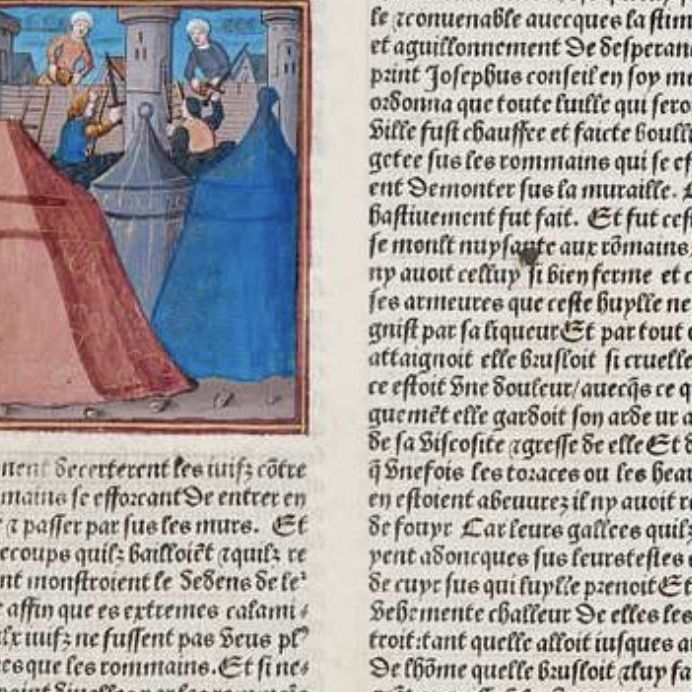 nent decerterent les iuifz cõtre
mains se efforcant de entrer en
⁊ passer par sus les murs. Et
coups quilz bailloiẽt ⁊quilz re
nt monstroient le dedens de le
affin que es extremes calami
iuifz ne fussent pas veus pl
es que les rommains. Et si ne
le ⁊conuenable auecques la stim
et aguillonnement de desperan
print Josephus conseil en soy me
ordonna que toute luille qui sero
ville fust chauffee et faicte boulli
gettee sus les rommains qui se ef
ent demonter sus la muraille.
hastiuement fut fait. Et fut cest
se moult nuysante aux rõmains
ny auoit celluy si bien ferme et
ses armeures que ceste huylle ne
gnist par sa liqueur Et par tout
attaignoit elle brusloit si cruelle
ce estoit vne douleur/auecq̃s ce q
guemẽt elle gardoit son ardeur a
de sa viscosite ⁊gresse de elle Et
q̃ vnefois les toraces ou les hea
en estoient abeuurez il ny auoit r
de fouyr Car leurs gallees quilz
yent adoncques sus leurs testes
de cuyr sus qui luylle prenoit Et
vehemente challeur de elles les
troit:tant quelle alloit iusques a
de lhõme quelle brusloit ⁊luy fa